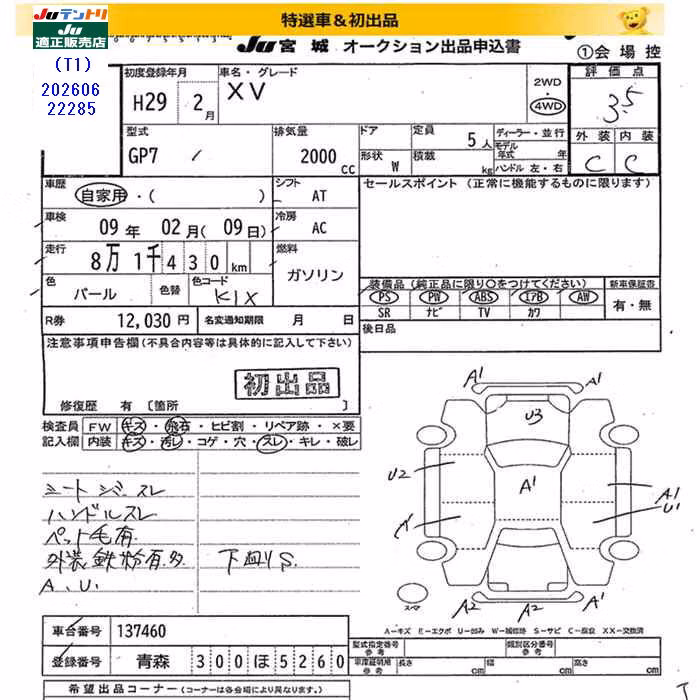 特選車＆初出品
Juテントリ
Ju
適正販売店
(T1)
202606
22285
Ju 宮 城 オークション出品申込書
①会 場 控
初度登録年月 車名・グレード 評 価 点
H29 2月 XV 2WD ・ 4WD 3.5
型式 排気量 ドア 定員 5人 ディーラー・並行 外 装 内 装
GP7 2000 cc 形状 W 積載 kg モデル年式 年 ハンドル 左・右 C C
車歴 自家用・( ) シフト AT セールスポイント (正常に機能するものに限ります)
車検 09年 02月(09日) 冷房 AC
走行 8万1千430km 燃料 ガソリン
色 パール 色替 色コード K1X
装備品(純正品に限り○をつけてください) 新車保証書
PS PW ABS エアB AW 有・無
SR ナビ TV カワ
R券 12,030円 名変通知期限 月 日 後日品
注意事項申告欄(不具合内容等は具体的に記入して下さい)
初出品
修復歴 有 〔箇所 〕
検査員 FW キズ・飛石・ヒビ割・リペア跡・×要
記入欄 内装 キズ・汚レ・コゲ・穴・スレ・キレ・破レ
シートシミ・スレ
ハンドルスレ
ペット毛有
外装鉄粉有.多 下廻りS.
A、U.
A1 A1
U3
U2 A1 A1
U1
A1
スペア A2 A2 A1
A－キズ E－エクボ U－凹ミ W－補修跡 S－サビ C－腐食 XX－交換済
車台番号 137460
型式指定番号 参考 類別区分番号 参考
登録番号 青森 300ほ5260
車庫証明用 参考 長さ cm 幅 cm 高さ cm
希望出品コーナー (コーナーは各会場により異なります。)